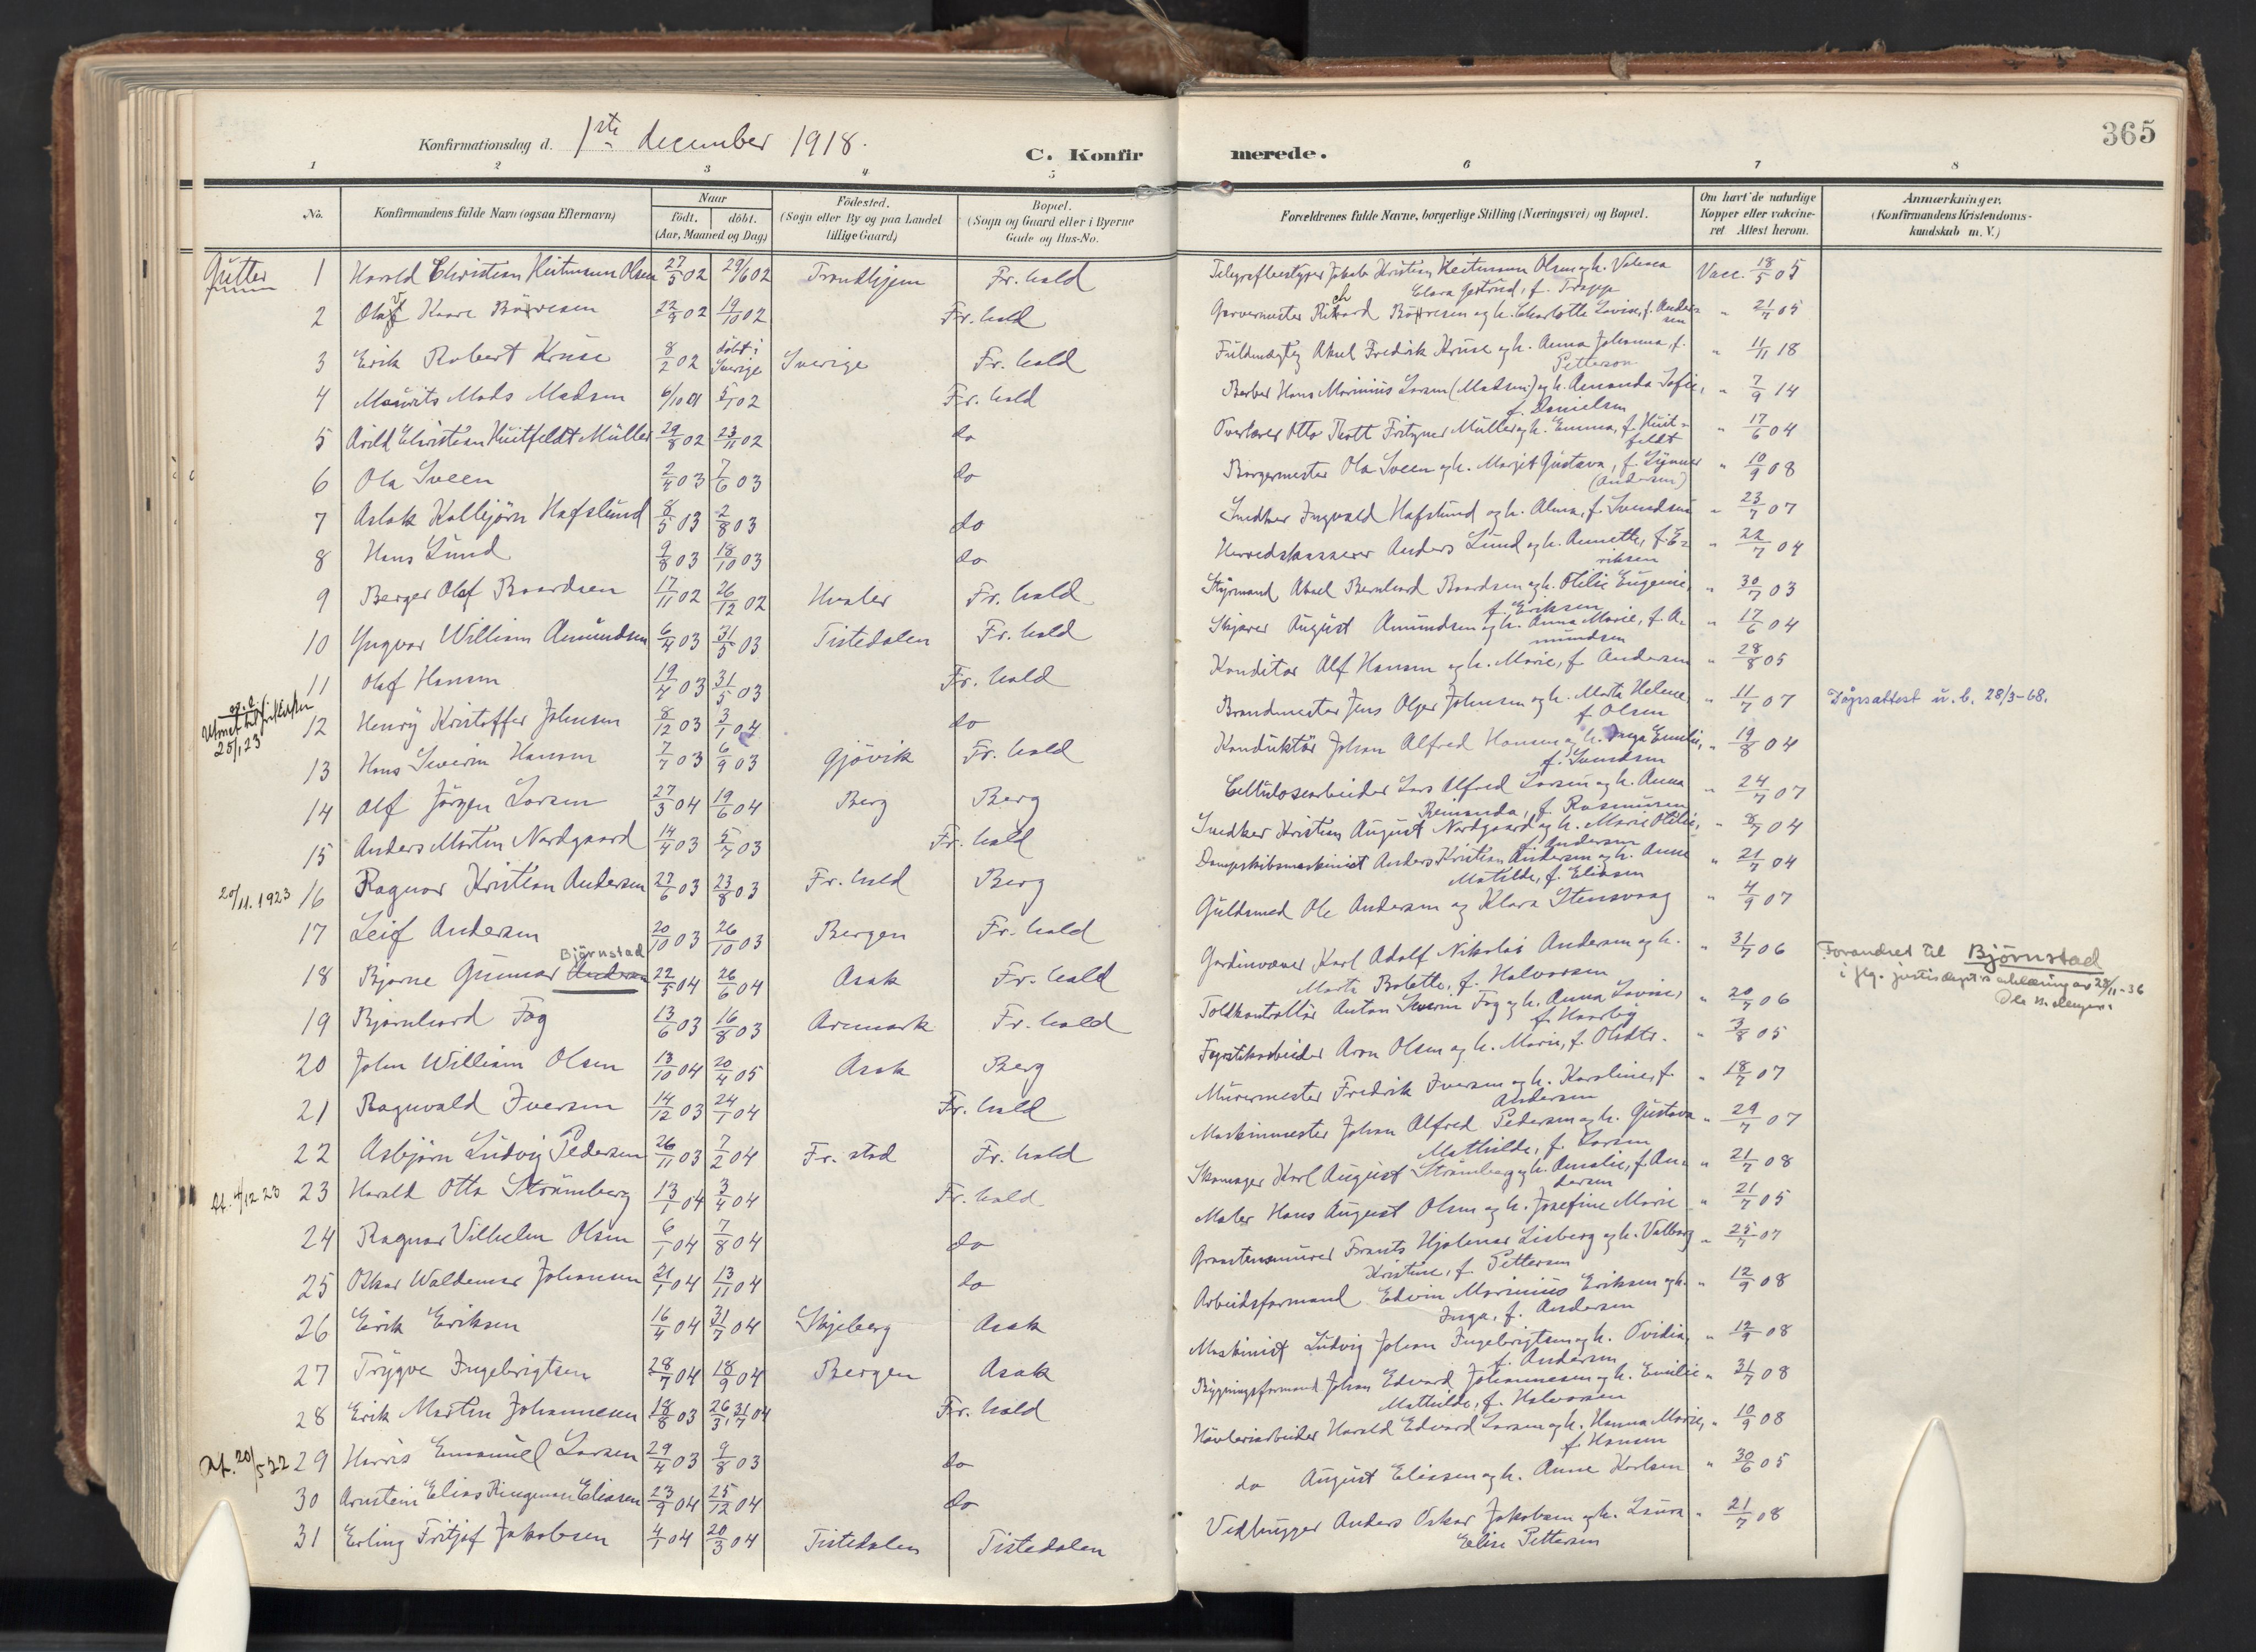 365
Konfirmationsdag d. 1ste december 1918.
C. Konfirmerede.
1 2 3 4 5 6 7 8
No. Konfirmandens fulde Navn (ogsaa Efternavn) Naar födt. döbt. (Aar, Maaned og Dag) Födested. (Sogn eller By og paa Landet tillige Gaard) Bopæl. (Sogn og Gaard eller i Byerne Gade og Hus-No. Forældrenes fulde Navne, borgerlige Stilling (Næringsvei) og Bopæl. Om havt de naturlige Kopper eller vakcineret Attest herom. Anmærkninger. (Konfirmandens Kristendomskundskab m. V.)
Gutter
1 Harald Christian Heitmann Olsen 27/5 02 29/6 02 Trondhjem Fr.hald Telegrafbestyrer Jakob Kristian Heitmann Olsen og h. Valesca Vacc. 18/5 05
Clara Gertrud, f. Trapp
2 Olaf Kaare Börresen 22/9 02 19/10 02 Fr.hald Garvermester Richard Börresen og h. Charlotte Lovise, f. Andersen " 21/7 05
3 Erik Robert Kruse 8/2 02 döbt i Sverige Sverige Fr.hald Fuldmægtig Axel Fredrik Kruse og h. Anna Johanna, f. " 11/11 18
Petterson
4 Mauritz Mads Madsen 6/10 01 5/1 02 Fr.hald Barber Hans Marinius Larsen (Madsen) og h. Amanda Sofie, " 7/9 14
f. Danielsen
5 Arild Christian Huitfeldt Müller 29/8 02 23/11 02 do Overlærer Otto Thott Fritzner Müller og h. Emma, f. Huitfeldt " 17/6 04
6 Ola Sveen 2/4 03 7/6 03 do Borgermester Ola Sveen og h. Marjit Gustava, f. Lynner " 10/9 08
(Andersen)
7 Aslak Kolbjörn Hafslund 8/5 03 2/8 03 do Snedker Ingvald Hafslund og h. Alma, f. Svendsen " 23/7 07
8 Hans Lund 9/8 03 18/10 03 do Herredskasserer Anders Lund og h. Annette, f. Eriksen " 22/7 04
9 Berger Olaf Baardsen 17/11 02 26/12 02 Hvaler Fr.hald Styrmand Axel Bernhard Baardsen og h. Otilie Eugenie, " 30/7 03
f. Eriksen
10 Yngvar William Amundsen 6/4 03 31/5 03 Tistedalen Fr.hald Skjærer August Amundsen og h. Anna Marie, f. Amundsen " 17/6 04
11 Olaf Hansen 19/4 03 31/5 03 Fr.hald Konditor Alf Hansen og h. Marie, f. Andersen " 28/8 05
25/1 23
12 Henry Kristoffer Johnsen 8/12 03 3/1 04 do Brandmester Jens Olger Johnsen og h. Marta Helene, " 11/7 07 Dåpsattest u.b. 28/3-68.
f. Olsen
13 Hans Severin Hansen 7/7 03 6/9 03 Gjövik Fr.hald Konduktör Johan Alfred Hansen og h. Inga Emilie, " 19/8 04
f. Svendsen
14 Alf Jörgen Larsen 27/3 04 19/6 04 Berg Berg Cellulosearbeider Lars Alfred Larsen og h. Anna " 24/7 07
Reimanda, f. Rasmussen
15 Anders Martin Nordgaard 14/4 03 5/7 03 Fr.hald Snedker Kristian August Nordgaard og h. Marie Otilie, " 8/7 04
f. Andersen
20/11.1923 16 Ragnar Kristian Andersen 22/6 03 23/8 03 Fr.hald Berg Dampskibsmaskinist Anders Kristian Andersen og h. Anna " 21/7 04
Matilde, f. Eliasen
17 Leif Andersen 20/10 03 26/10 03 Bergen Fr.hald Guldsmed Ole Andersen og Klara Stensvaag " 4/9 07
Björnstad
18 Bjarne Gunnar Andersen 22/5 04 26/6 04 Asak Fr.hald Gardinvæver Karl Adolf Nikolai Andersen og h. " 31/7 06 Forandret til Björnstad
Marta Bolette, f. Halvorsen
19 Bjarnhard Fog 13/6 03 16/8 03 Aremark Fr.hald Toldkontrollör Anton Severin Fog og h. Anna Lovise, " 20/7 06
f. Haarby
20 John William Olsen 13/10 04 20/4 05 Asak Berg Fyrstikarbeider Aron Olsen og h. Marie, f. Olsdtr. " 3/8 05
21 Ragnvald Iversen 14/12 03 24/1 04 Fr.hald Murermester Fredrik Iversen og h. Karoline, f. " 18/7 07
Andersen
22 Asbjörn Ludvig Pedersen 26/11 03 7/2 04 Fr.stad Fr.hald Maskinmester Johan Alfred Pedersen og h. Gustava " 29/7 07
Mathilde, f. Larsen
at. 4/12 23 23 Harald Otto Strömberg 13/1 04 3/4 04 Fr.hald Skomager Karl August Strömberg og h. Amalie, f. Andersen " 21/7 08
24 Ragnar Vilhelm Olsen 6/1 04 7/8 04 do Maler Hans August Olsen og h. Josefine Marie " 21/7 05
25 Oskar Waldemar Johansen 21/1 04 13/11 04 do Graastensmurer Frants Hjalmar Lisberg og h. Valborg " 25/7 07
Kristine, f. Pettersen
26 Erik Eriksen 16/4 04 31/7 04 Skjeberg Asak Arbeidsformand Edvin Marinius Eriksen og h. " 12/9 08
Inga, f. Andersen
27 Trygve Ingebrigtsen 28/7 04 18/9 04 Bergen Asak Maskinist Ludvig Johan Ingebrigtsen og h. Ovidia, " 12/9 08
f. Andersen
28 Erik Martin Johannesen 18/8 03 26/3, 31/7 04 Fr.hald Bygningsformand Johan Edvard Johannesen og h. Emilie " 31/7 08
Mathilde, f. Halvorsen
at. 20/5 22 29 Harris Emanuel Larsen 29/4 03 9/8 03 do Høvleriarbeider Harald Edvard Larsen og h. Hanna Marie, " 10/9 08
f. Hansen
30 Arnstein Elias Ringman Eliasen 23/9 04 25/12 04 do do August Eliassen og h. Anne Karlsen " 30/6 05
31 Erling Fritjof Jakobsen 4/1 04 20/3 04 Tistedalen Tistedalen Vedhugger Anders Oskar Jakobsen og h. Laura " 21/7 08
Elise Pettersen